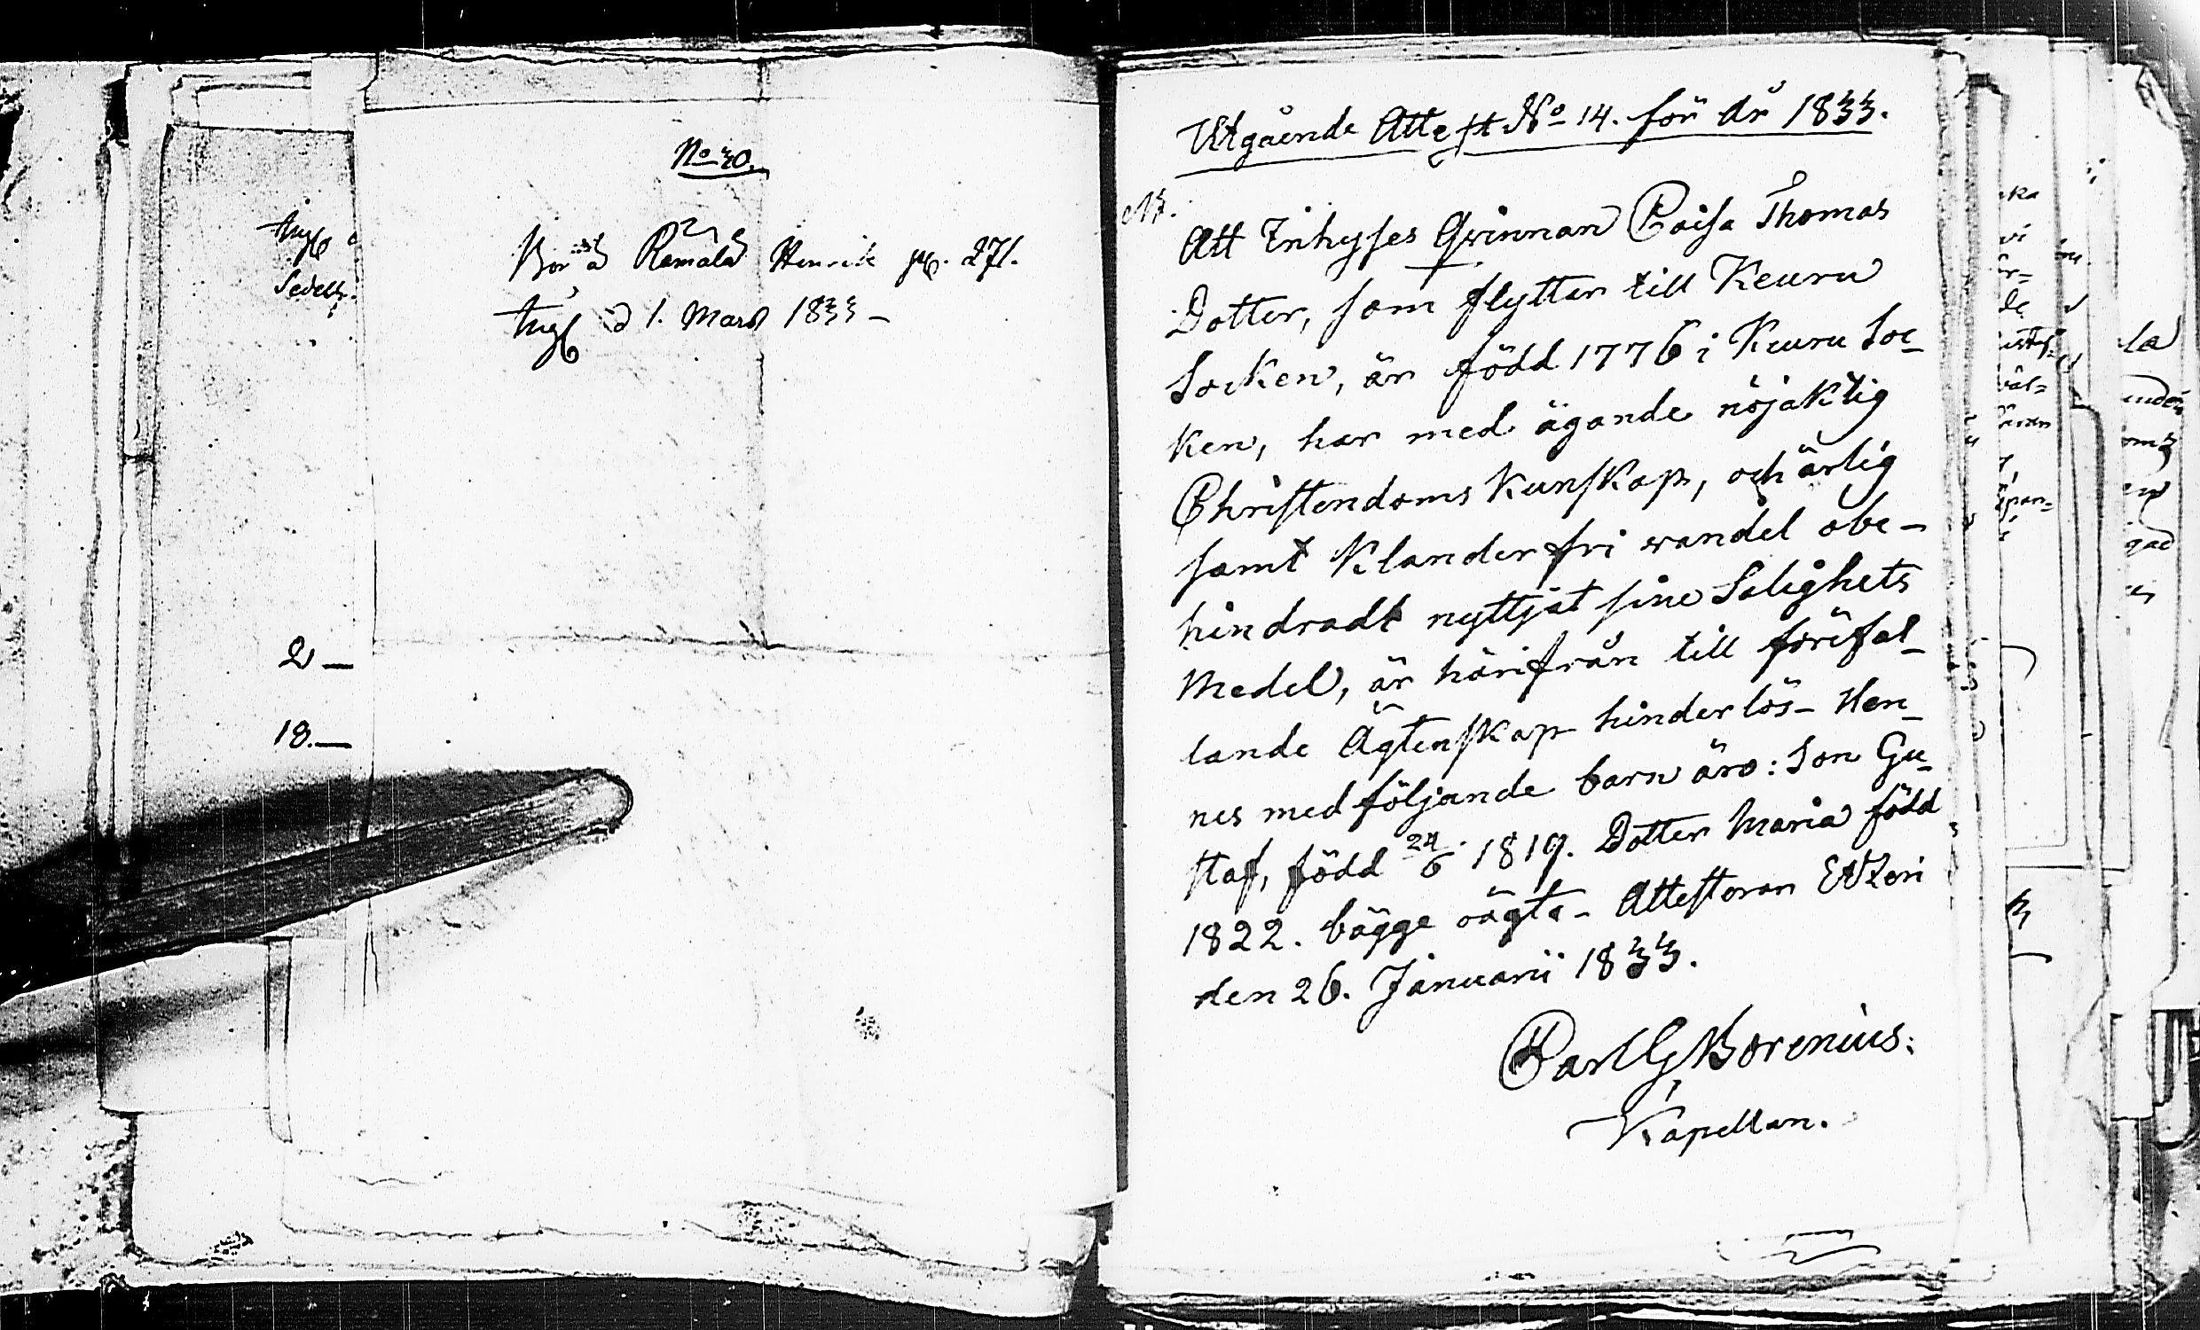 No 30.
Bor på Ramala Henrik pg. 271.
d 1. Mars 1833 –
2 –
18. –
Utgående Attest No 14. för År 1833.
Att Inhyses Qvinnan Caisa Thomas
Dotter, som flyttar till Keuru
Socken, är född 1776 i Keuru Soc-
ken, har med ägande nöjaktig
Christendoms Kunskap, och ärlig
samt Klanderfri wandel obe-
hindradt nyttjat sine Salighets
Medel, är härifrån till förefal-
lande Ägtenskap hinderlös – Hen-
nes medföljande barn äro: Son Gu-
staf, född 24/6 1819. Dotter Maria född
1822. bägge oägta – Attesteran Etzeri
den 26. Januarii 1833.
Carl G Borenius.
Kapellan.